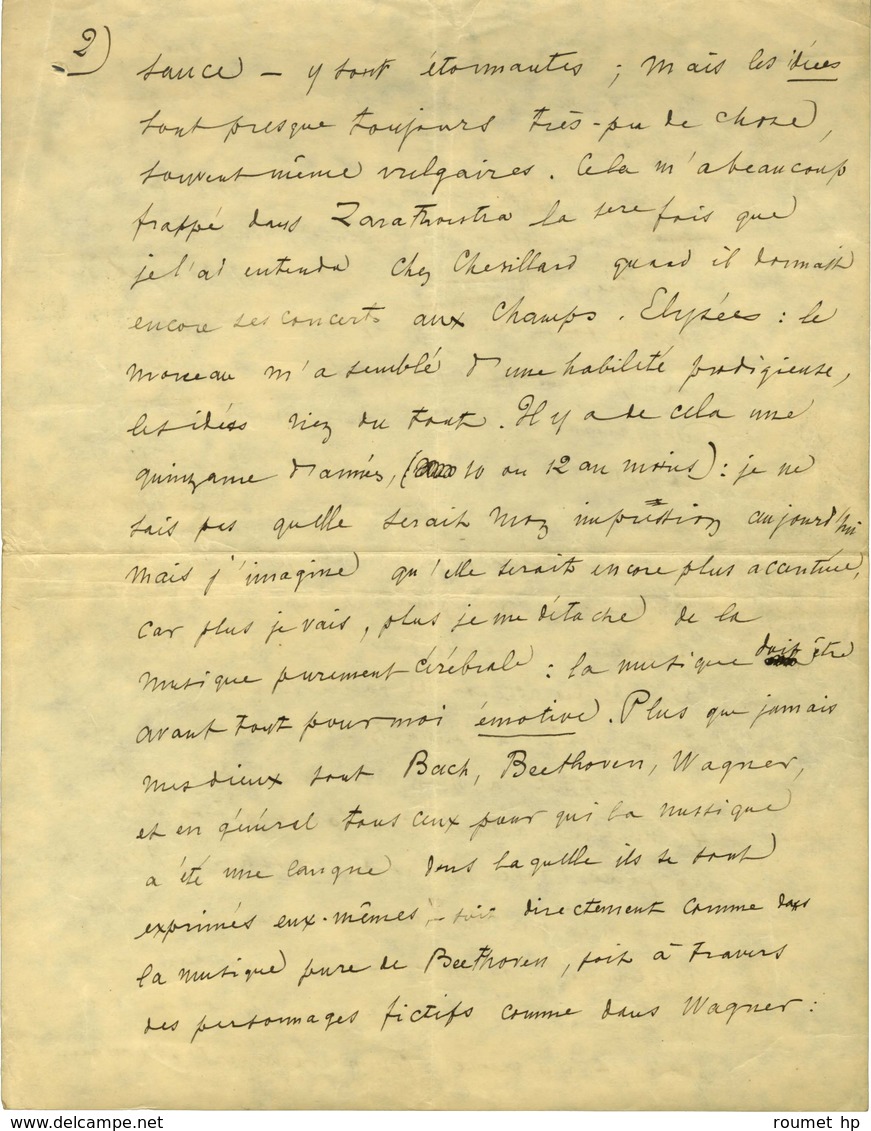 2)
sance – y sont étonnantes ; mais les idées
sont presque toujours très-peu de chose,
souvent même vulgaires. Cela m'a beaucoup
frappé dans Zarathoustra la 1ere fois que
je l'ai entendu chez Chevillard quand il donnait
encore ses concerts aux Champs-Elysées : le
morceau m'a semblé d'une habileté prodigieuse,
les idées rien du tout. Il y a de cela une
quinzaine d'années, ( 10 ou 12 au moins) : je ne
sais pas quelle serait mon impression aujourd'hui
mais j'imagine qu'elle serait encore plus accentuée,
car plus je vais, plus je me détache de la
musique purement cérébrale : la musique doit être
avant tout pour moi émotive. Plus que jamais
mes dieux sont Bach, Beethoven, Wagner,
et en général tous ceux pour qui la musique
a été une langue dans laquelle ils se sont
exprimés eux-mêmes, – soit directement comme dans
la musique pure de Beethoven, soit à travers
des personnages fictifs comme dans Wagner :
roumet hp